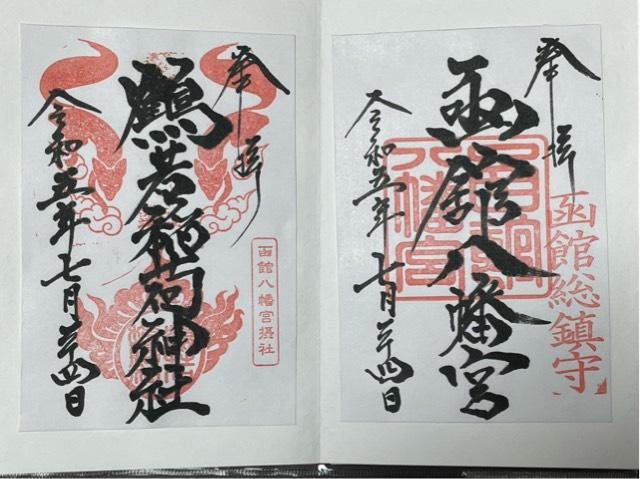 奉拝
函館総鎮守
函館八幡宮
函館八幡宮
令和五年七月廿四日
奉拝
函館八幡宮摂社
鶴若稲荷神社
令和五年七月廿四日